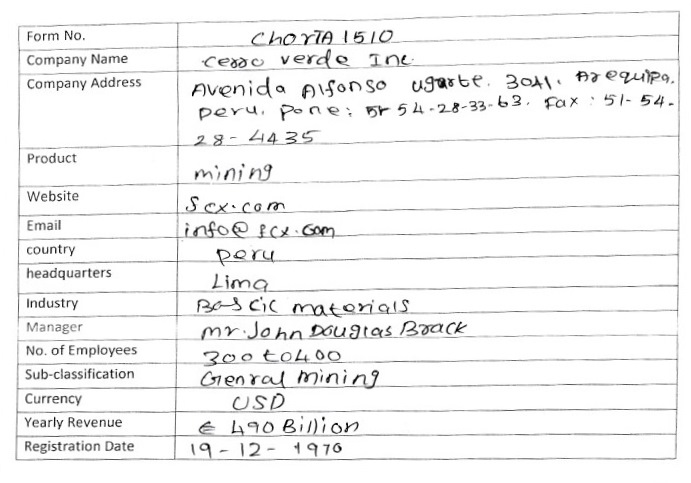 Form No. ChorTA 1510
Company Name Cerro verde Inc.
Company Address Avenida Alfonso ugarte. 3041. Arequipa.
peru. pone: 51 54-28-33-63. Fax : 51-54-
28-4435
Product mining
Website Scx.com
Email info@fcx.com
country peru
headquarters Lima
Industry Bascic materials
Manager mr. John Douglas Brack
No. of Employees 300 to 400
Sub-classification Genral mining
Currency USD
Yearly Revenue € 490 Billion
Registration Date 19-12-1970